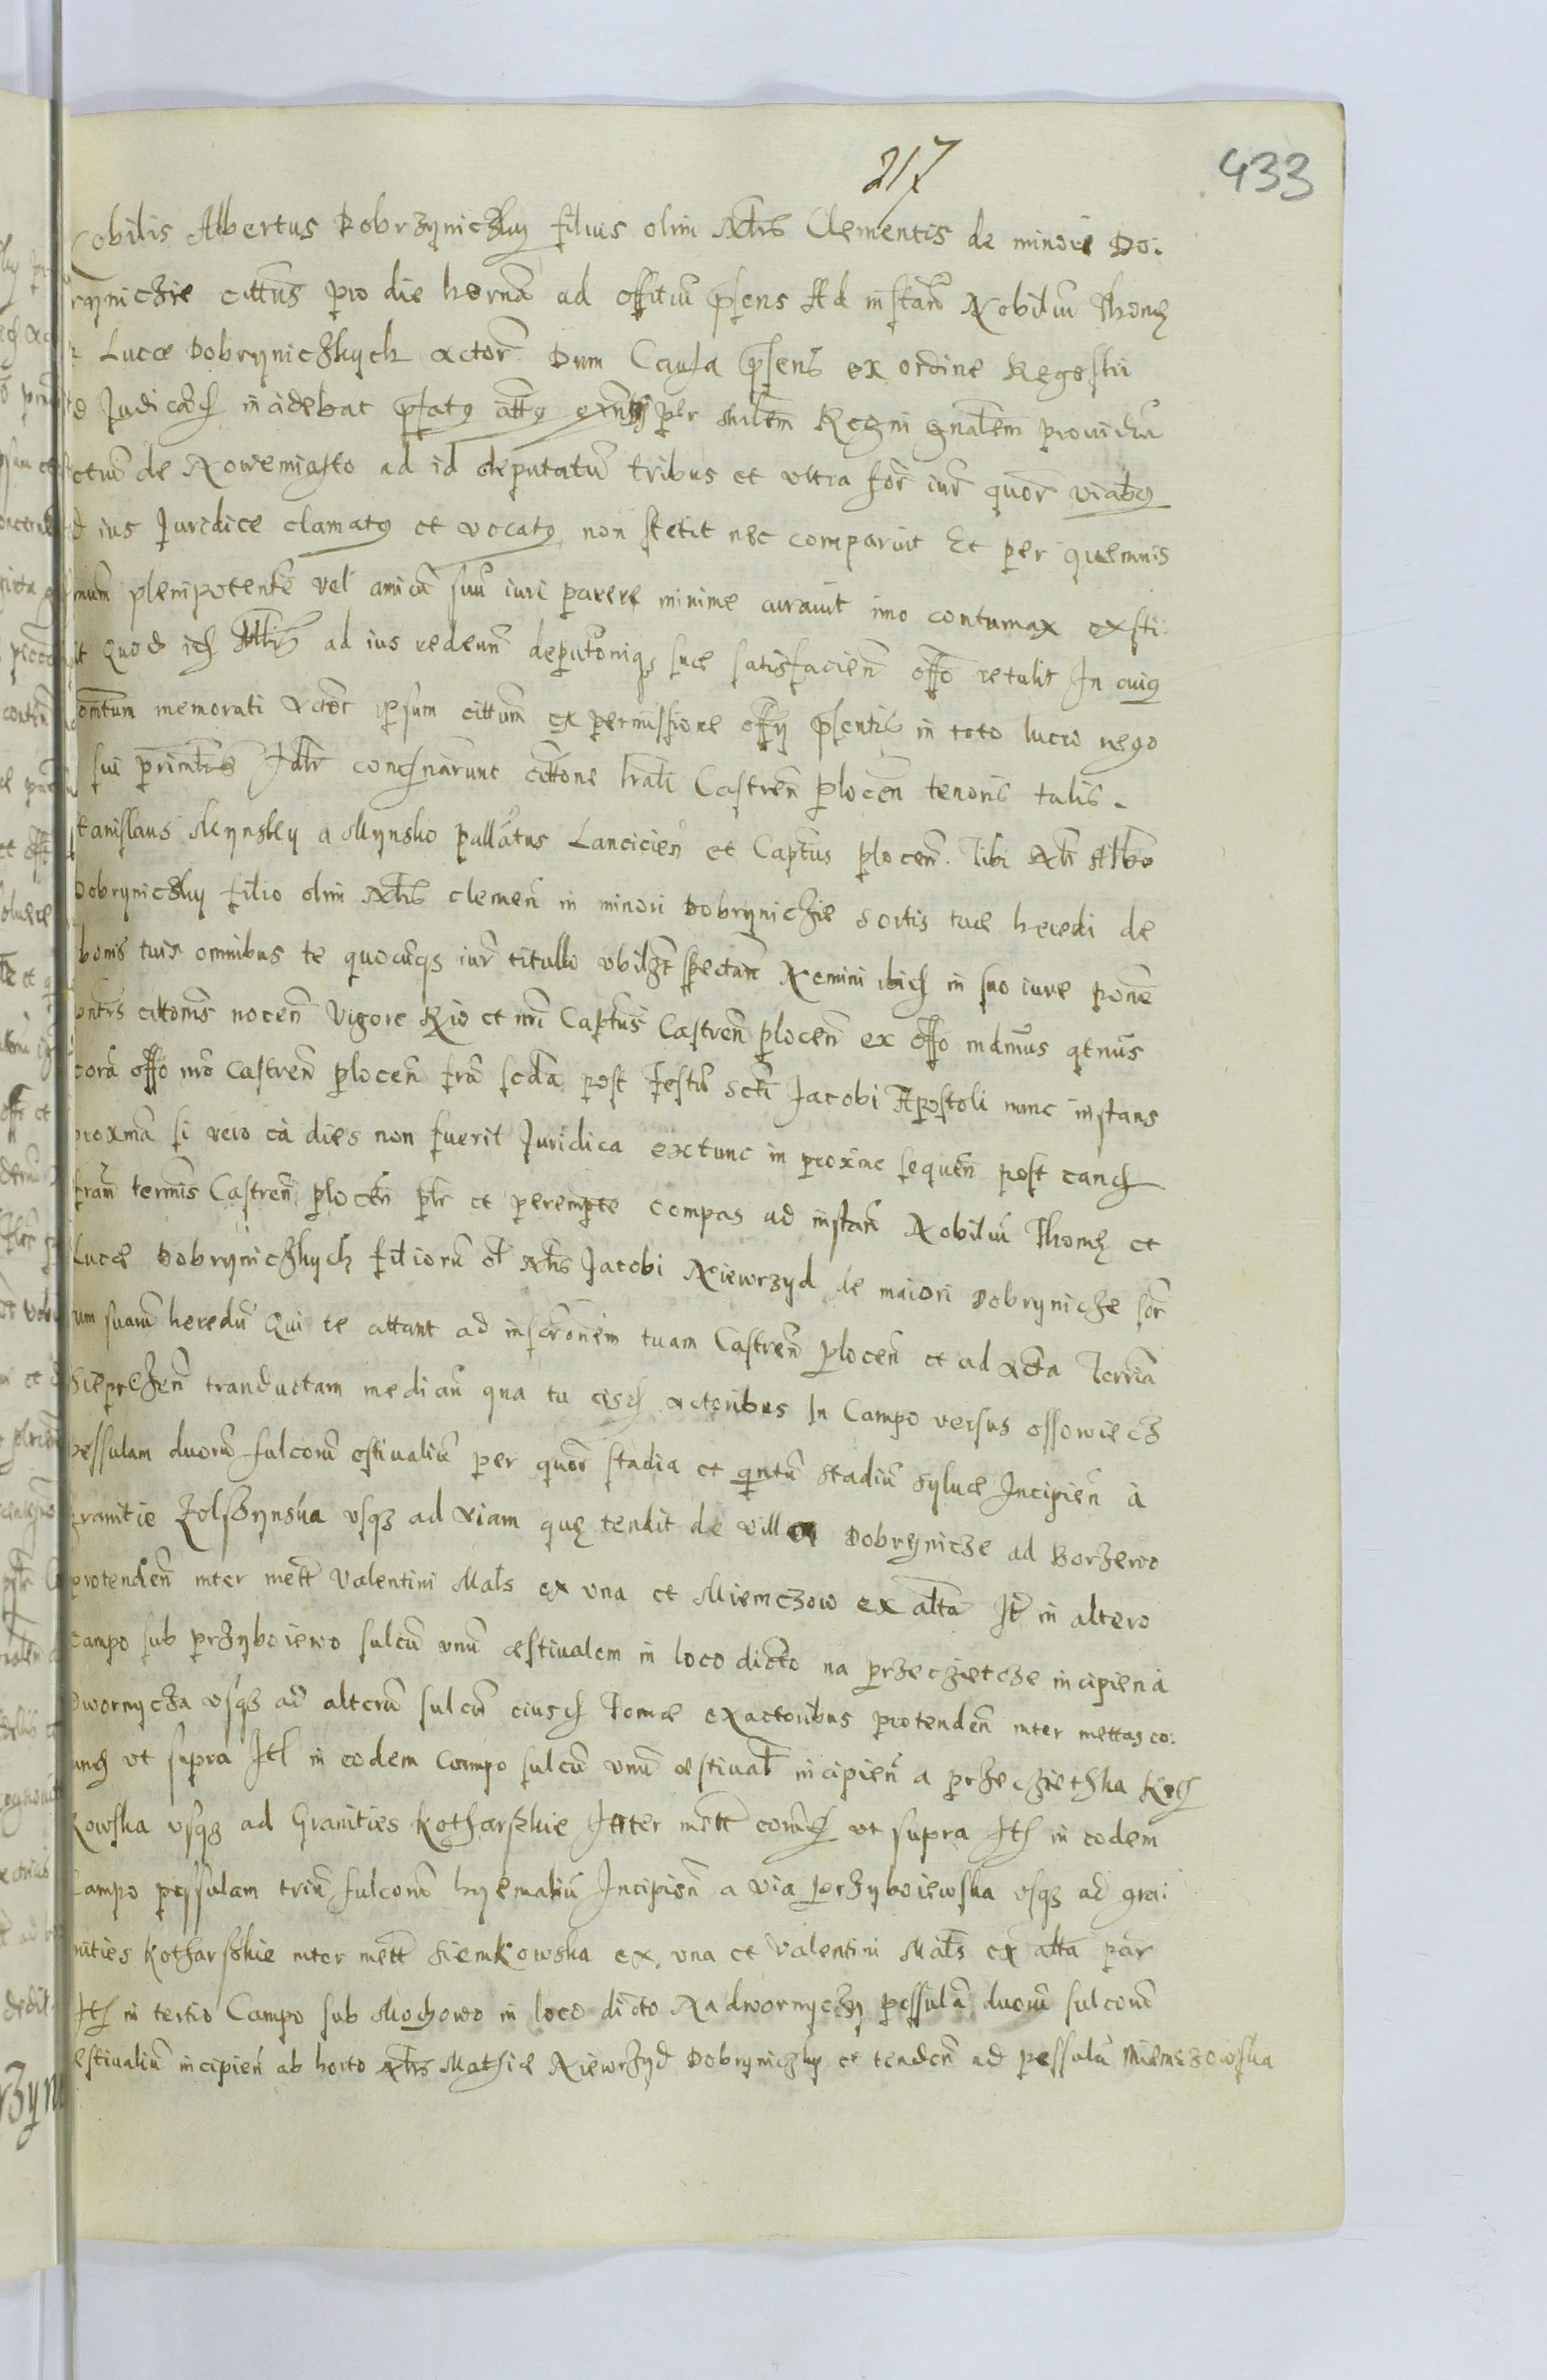 217
433
Nobilis Albertus Dobrzyniczky filius olim Nblis Clementis de minore Do:
rzynichie cittus pro die hodierna ad officiu psens Ad instan Nobiliu Thomę
Lucæ Dobryniczkych Actor Dum Causa psens ex ordine Regestri
Judicię incidebat pfatq per mlem Regni gnalem providu
de Nowemiasto ad id deputatu tribus et ultra for iur quor viabq
ius Juridice clamatq et vocatq non stetit nec comparuit Et per quemuis
num plenipotente vel amicu suu iuri parere minime curauit imo contumax exsti:
tit Quod ide Mtlis ad ius redeun deputoniqz suæ satisfacien offo retulit In cuiq
memorati Actor ipsum cittum ex permissione offy psentis in toto lucro nego
sui condnarunt cittone lrali Castren plocen tenoris talis.
Stanislaus Mynsky a Mynsko pallatus Lancicien et Captus plocen. Tibi Nbli Albto
Dobryniczky filio olim Nblis clemen in minori Dobrynichie sortis tuæ heredi de
bonis tuis omnibus te quocuqz iur titullo ubilzt spectan Nemini ibide in suo iure pone
pntis cittonis nocen Vigore Rio et nri Captus Castren plocen ex offo mdmus qtnus
cora offo nro Castren plocen fria scda post festu scti Jacobi Apostoli nunc instans
proxma si vero ea dies non fuerit Juridica extunc in proxime sequen post eande
termis Castren plocen plr et perempte compas ad instan Nobiliu Thomę et
Lucæ Dobryniczkych filioru ol Nblis Jacobi Niewrzyd de maiori Dobryniche sor
tium suaru heredu Qui te attant ad inscronem tuam Castren plocen et ad Acta Terria
Sieprczen tranductam median qua tu eisde actoribus In Campo versus ossowiecz
pessulam duoru sulcoru estivaliu per quor stadia et qntu stadiu syluæ Incipien à
granitie Zolszynska usqz ad viam quę tendit de villa Dobryniche ad Borzewo
protenden inter mett Valentini Mats ex una et Miemczow ex alta It in altero
campo sub przyboiewo sulcu unu æstivalem in loco dicto na przeczietcze incipien à
Dwornycza usqz ad alteru sulcu eiusde Tomæ exactoribus protenden inter mettas co:
unde ut supra Ite in eodem campo sulcu unu æstival incipien a przeczietzka
kowska usqz ad Granities kotharskie Inter mett ut supra Ite in eodem
Campo pessulam triu sulcoru hyemaliu Incipien a via przyboiewska usqz ad gra:
nities kotharskie inter mett Siemkowska ex una et Valentini Mats ex alta par
Ite in tertio Campo sub Mochowo in loco dicto Nadwornyczy pessula duoru sulcoru
estivaliu incipien ab horto Nblis Mathiæ Niewrzyd Dobryniczky et tenden ad pessula Miemczowska